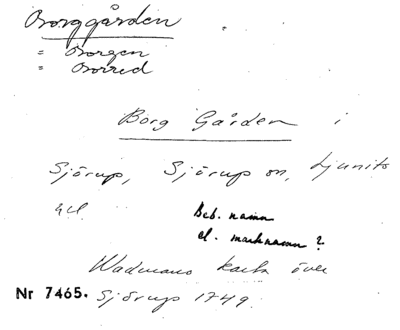 Borggården
= Borgen
= Borred
Borg Gården i
Sjörup, Sjörup sn, Ljunits
hd
Beb. namn
el. marknamn?
Wadmans karta över
Nr 7465. Sjörup 1749.